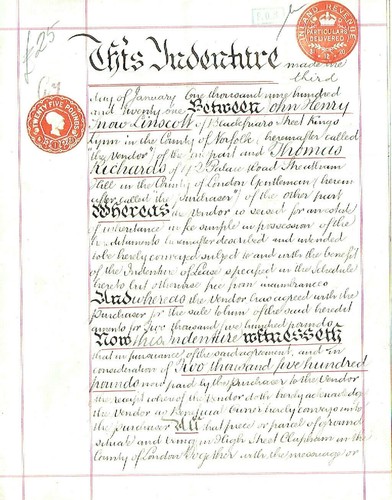 £25
INLAND REVENUE
PARTICULARS
DELIVERED
TWENTY FIVE POUNDS
This Indenture made the
third
day of January One thousand nine hundred
and twenty one Between John Henry
Snow Linscott of Blackfriars Street Kings
Lynn in the County of Norfolk (hereinafter called
the Vendor) of the one part and Thomas
Richards of Palace Road Streatham
Hill in the County of London Gentleman (herein
after called the Purchaser) of the other part
Whereas the Vendor is seised for an estate
of inheritance in fee simple in possession of the
hereditaments hereinafter described and intended
to be hereby conveyed subject to and with the benefit
of the Indenture of Lease specified in the Schedule
hereto but otherwise free from incumbrances
And whereas the Vendor has agreed with the
Purchaser for the sale to him of the said heredit
aments for Two thousand five hundred pounds
Now this indenture witnesseth
that in pursuance of the said agreement and in
consideration of Two thousand five hundred
pounds now paid by the Purchaser to the Vendor
the receipt whereof the Vendor doth hereby acknowledge
the Vendor as Beneficial Owner hereby conveys unto
the Purchaser All that piece or parcel of ground
situate and being in High Street Clapham in the
County of London Together with the messuage or